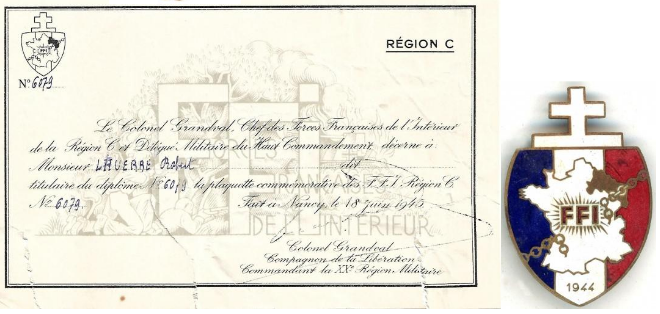 RÉGION C
FFI
N° 6079
Le Colonel Grandval, Chef des Forces Françaises de l'Intérieur
de la Région C et Délégué Militaire du Haut Commandement, décerne à
Monsieur LAUERRE Robert dit
titulaire du diplôme N° 6079 la plaquette commémorative des F.F.I. Région C.
N° 6079. Fait à Nancy, le 18 Juin 1945
DE L'INTÉRIEUR
Colonel Grandval
Compagnon de la Libération
Commandant la XXe Région Militaire
FFI
1944